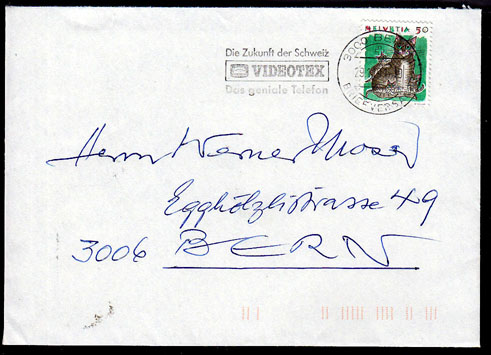 Die Zukunft der Schweiz
VIDEOTEX
Das geniale Telefon
HELVETIA 50
3000 BE
29
BRIEFVERSA
Herrn Werner Moser
Egghölzlistrasse 49
3006 BERN